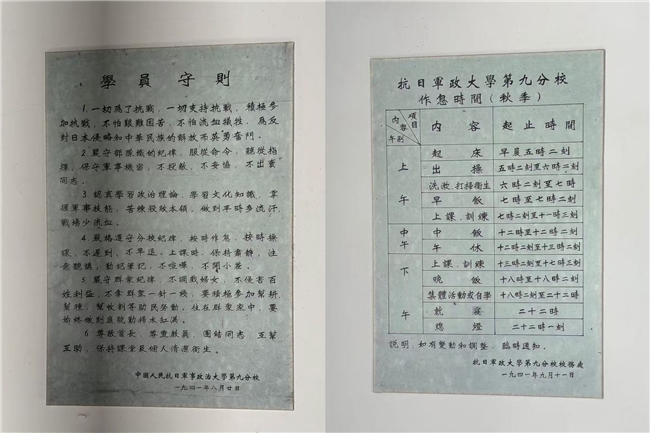 學員守則
1.一切為了抗戰,一切支持抗戰,積極參
加抗戰,不怕艱難困苦,不怕流血犧牲,為反
對日本侵略和中華民族的解放而英勇奮鬥。
2.嚴守部隊鐵的紀律,服從命令,聽從指
揮,保守軍事機密,不投敵,不妥協,不出賣
同志。
3.認真學習政治理論,學習文化知識,掌
握軍事技能,苦練殺敵本領,做到平時多流汗,
戰場少流血。
4.嚴格遵守分校紀律,按時作息,按時操
課,不遲到,不早退,上課時,保持肅靜,注
意聽講,勤記筆記,不喧嘩,不開小差。
5.嚴守群眾紀律,不調戲婦女,不侵害百
姓利益,不拿群眾一針一綫,要積極參加幫耕
幫種,幫收割等助民勞動,住在群眾家中,要
始終做到庭院勤掃水缸滿。
6.尊敬首長,尊重教員,團結同志,互幫
互助,保持課堂及個人清潔衛生。
中國人民抗日軍事政治大學第九分校
一九四一年八月廿日
抗日軍政大學第九分校
作息時間(秋季)
項目 內容 午別 內容 起止時間
上午 起床 早晨五時二刻
出操 五時二刻至六時二刻
洗漱、打掃衛生 六時二刻至七時
早飯 七時至七時二刻
上課、訓練 七時二刻至十一時三刻
中午 中飯 十二時至十二時二刻
午休 十二時二刻至十三時二刻
下午 上課、訓練 十三時二刻至十七時三刻
晚飯 十八時至十八時二刻
集體活動或自學 十八時二刻至二十二時
就寢 二十二時
熄燈 二十二時一刻
說明:如有變動和調整,臨時通知。
抗日軍政大學第九分校校務處
一九四一年九月十一日